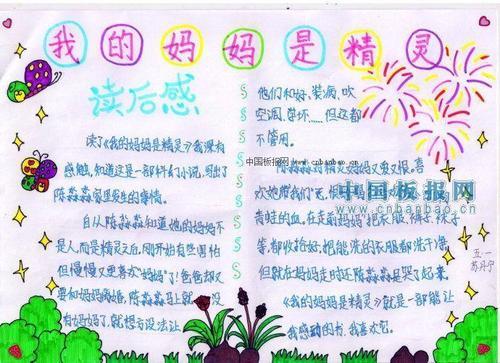 我的妈妈是精灵
读后感
读了《我的妈妈是精灵》我深有
感触,知道这是一部科幻小说,写出了
陈淼淼家里发生的事情。
自从陈淼淼知道她的妈妈不
是人,而是精灵之后,刚开始有些害怕
但慢慢又更喜欢"妈妈"了!爸爸却又
要和妈妈离婚,陈淼淼马上就
没有妈妈了,就想方设法让
他们和好、装病、吹
空调、学坏……但这都
不管用。
精灵妈妈又爱又恨,喜
青蛙的血,在走前妈妈"把衣服、裤子、袜子
等,都收拾好,把能洗的衣服都洗干净
但就在妈妈走时还陈淼淼是哭了起来,
《我的妈妈是精灵》就是一部能让
我感动的书,我喜欢它。
五一
苏丹宁
中国板报网 www.cnbanbao.cn
中国板报网
www.cnbanbao.cn